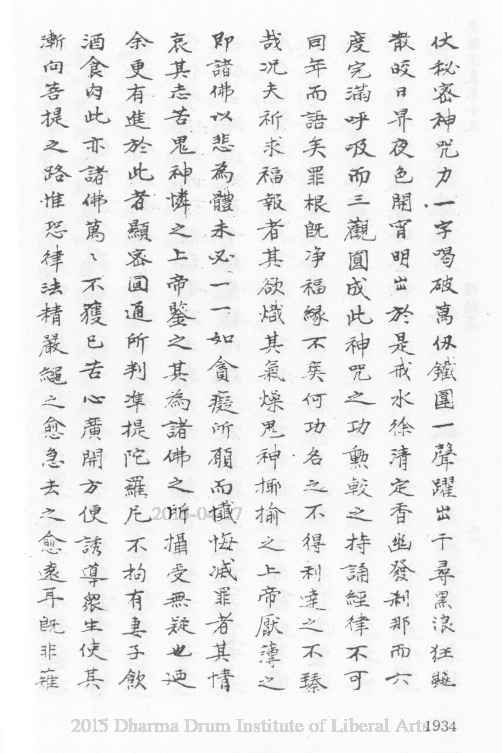 仗秘密神咒力一字喝破萬仞鐵圍一聲躍出千尋黑浪狂驅
散皎日昇夜色開宵明出於是戒水徐清定香幽發刹那而六
度完滿呼吸而三觀圓成此神咒之功勳較之持誦經律不可
同年而語矣罪根既净福緣不爽何功名之不得利達之不臻
哉况夫祈求福報者其欲熾其氣燥鬼神揶揄之上帝厭薄之
即諸佛以悲為體未必一一如貪癡所願而懺悔滅罪者其情
哀其志苦鬼神憐之上帝鑒之其為諸佛之所攝受無疑也廼
余更有進於此者顯密圓通所判準提陀羅尼不拘有妻子飲
酒食肉此亦諸佛萬〻不獲已苦心廣開方便誘導衆生使其
漸向菩提之路惟恐律法精嚴繩之愈急去之愈遠耳既非薙
2015 Dharma Drum Institute of Liberal Arts
1934